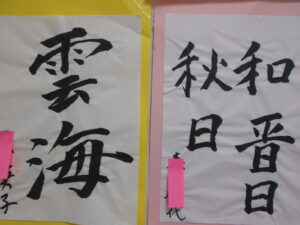 和晋日
秋日
代
雲海
子